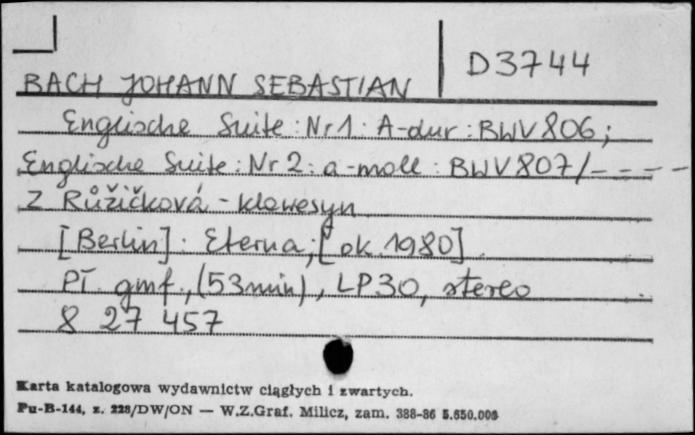 D3744
BACH JOHANN SEBASTIAN
Englische Suite : Nr 1 : A-dur : BWV 806 ;
Englische Suite : Nr 2 : a-moll : BWV 807 / - - - -
Z Růžičková - klawesyn
[Berlin] : Eterna ; [ok. 1980].
Pł. gmf., (53 min), LP 30, stereo
8 27 457
Karta katalogowa wydawnictw ciągłych i zwartych.
Pu-B-144, z. 228/DW/ON — W.Z.Graf. Milicz, zam. 388-86 5.650.005